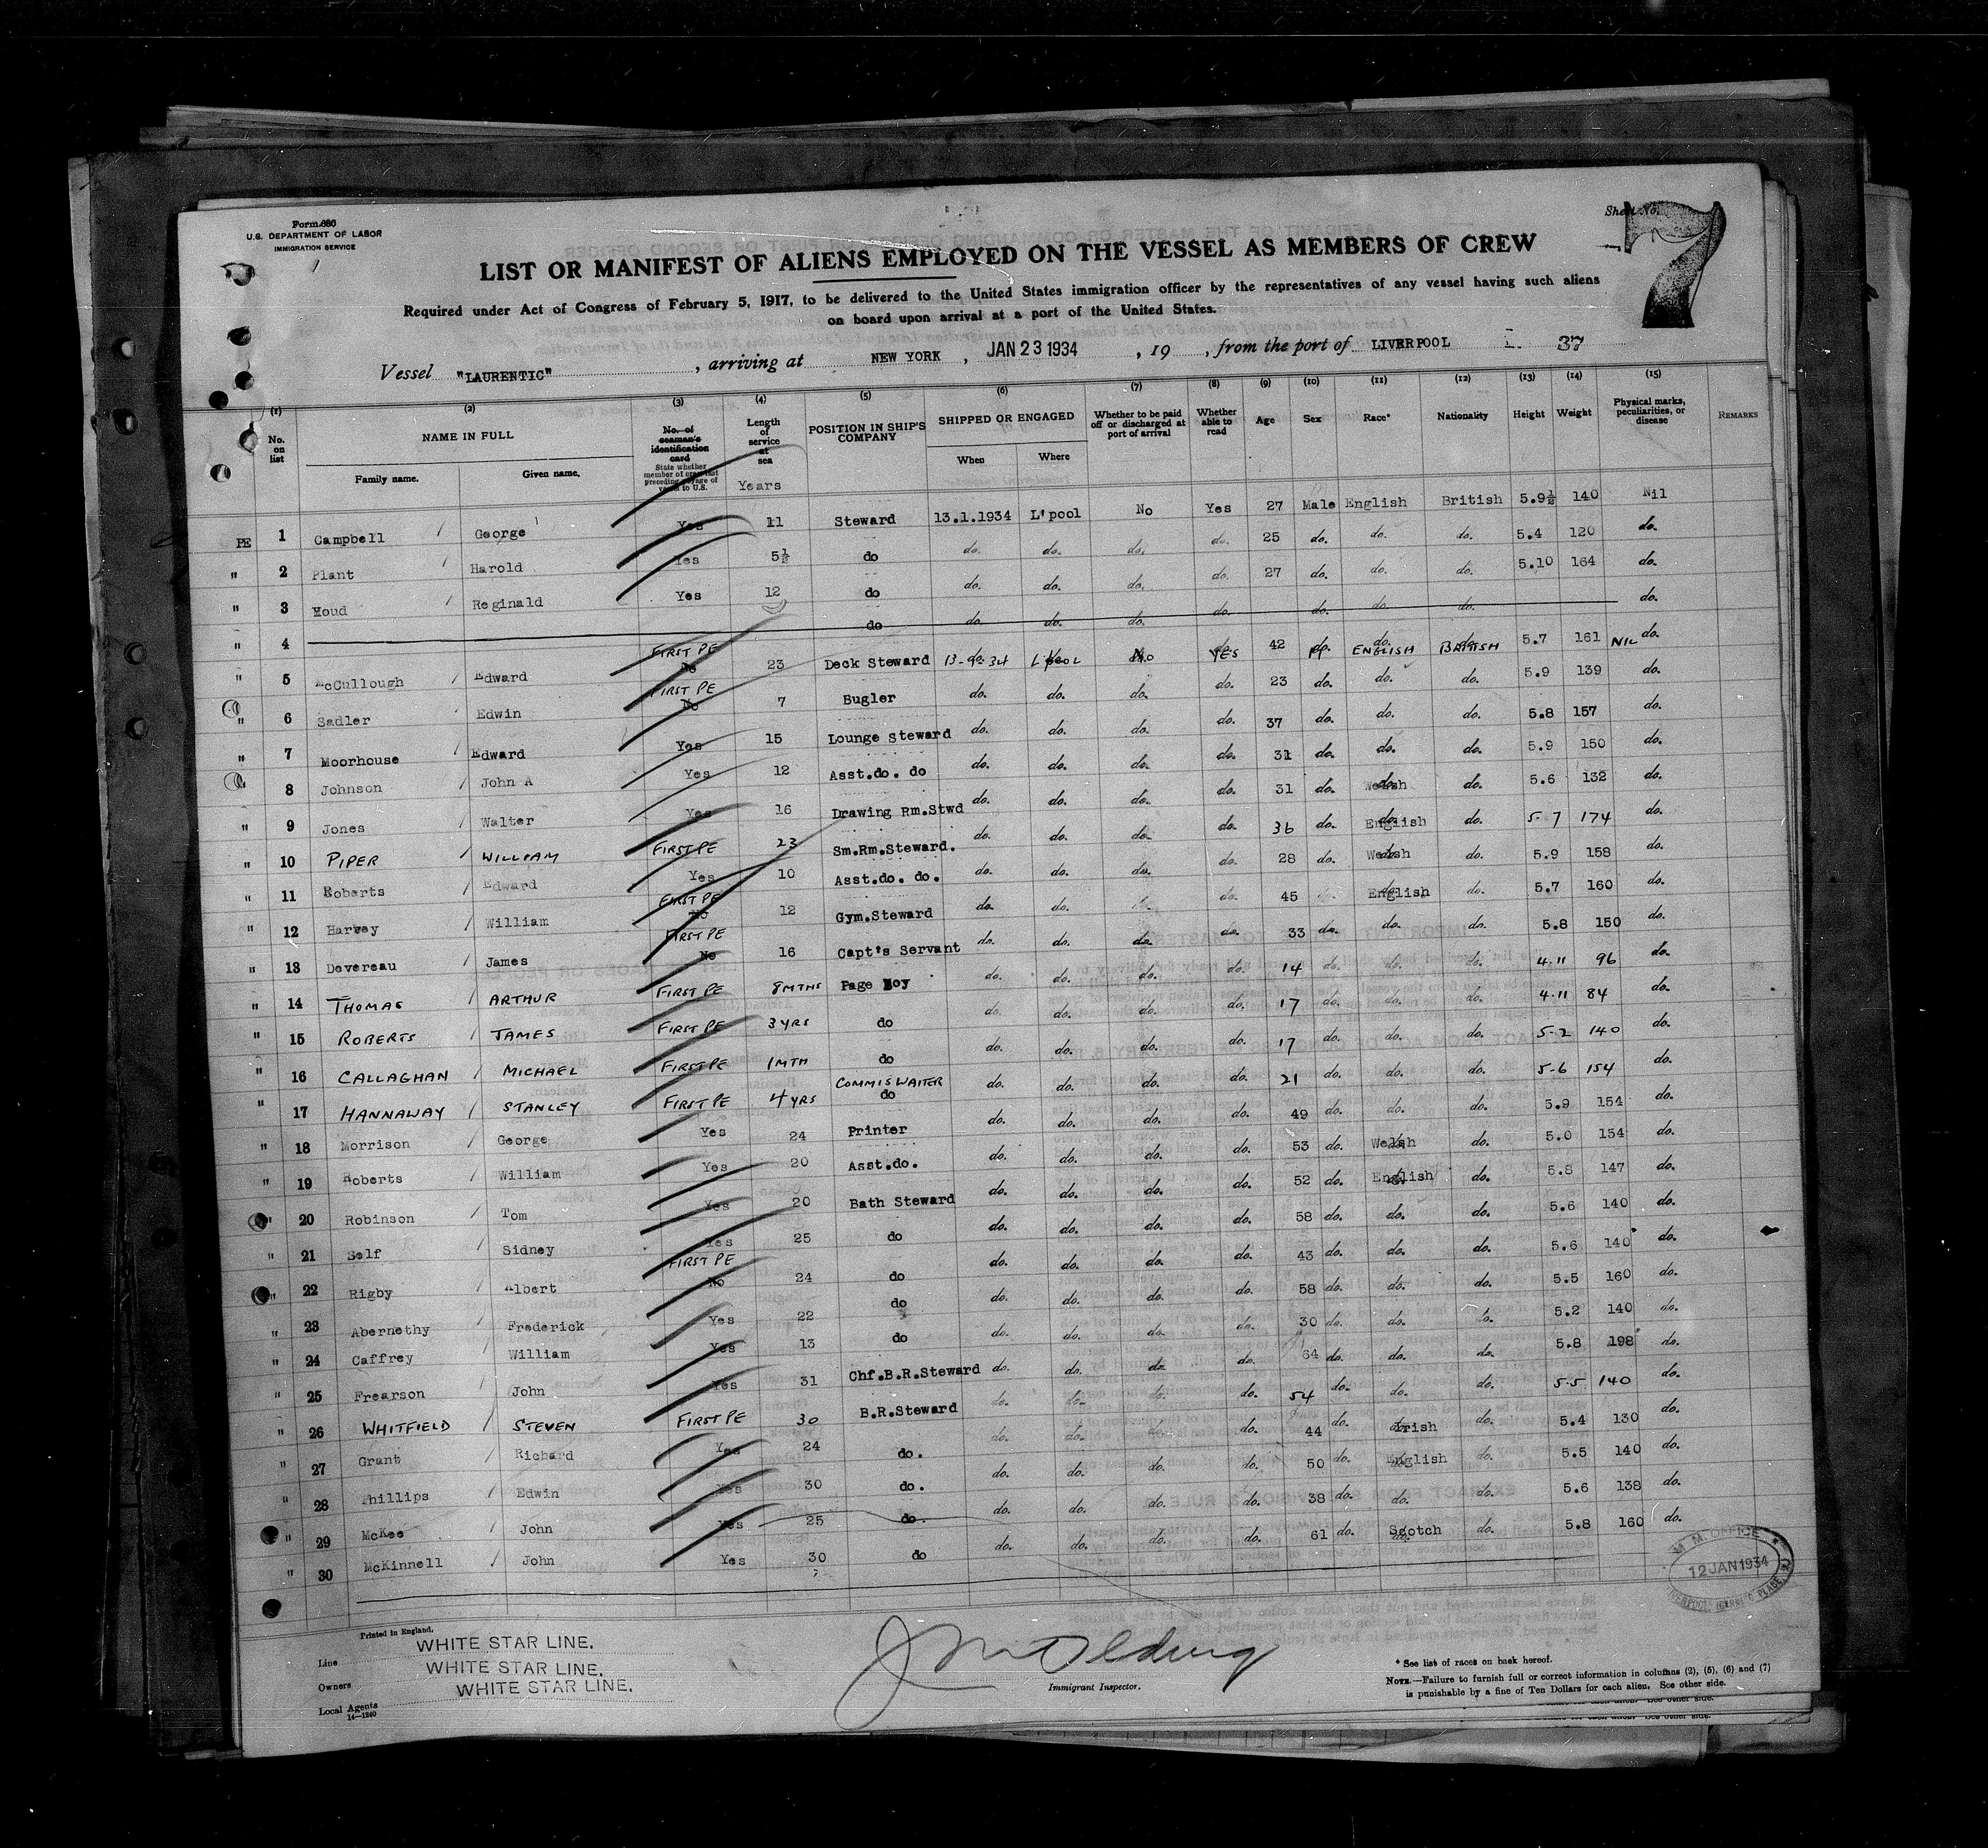 Form 680
U.S. DEPARTMENT OF LABOR
IMMIGRATION SERVICE
Sheet No.
7
LIST OR MANIFEST OF ALIENS EMPLOYED ON THE VESSEL AS MEMBERS OF CREW
Required under Act of Congress of February 5, 1917, to be delivered to the United States immigration officer by the representatives of any vessel having such aliens
on board upon arrival at a port of the United States.
Vessel "LAURENTIC", arriving at NEW YORK, JAN 23 1934, 19 , from the port of LIVERPOOL 37
(1) (2) (3) (4) (5) (6) (7) (8) (9) (10) (11) (12) (13) (14) (15)
No. on list NAME IN FULL Family name. Given name. No. of seaman's identification card State whether member of crew last preceding voyage of vessel to U.S. Length of service at sea Years POSITION IN SHIP'S COMPANY SHIPPED OR ENGAGED When Where Whether to be paid off or discharged at port of arrival Whether able to read Age Sex Race* Nationality Height Weight Physical marks, peculiarities, or disease REMARKS
PE 1 Campbell George Yes 11 Steward 13.1.1934 L'pool No Yes 27 Male English British 5.9½ 140 Nil
" 2 Plant Harold Yes 5½ do do. do. do. do. 25 do. do. do. 5.4 120 do.
" 3 Houd Reginald Yes 12 do do. do. do. do. 27 do. do. do. 5.10 164 do.
" 4 do do. do. do. do. do. do. do.
" 5 McCullough Edward FIRST PE No 23 Deck Steward 13-1-34 L'POOL No YES 42 M ENGLISH BRITISH 5.7 161 NIL do.
" 6 Sadler Edwin FIRST PE No 7 Bugler do. do. do. do. 23 do. do. do. 5.9 139 do.
" 7 Moorhouse Edward Yes 15 Lounge Steward do. do. do. do. 37 do. do. do. 5.8 157 do.
" 8 Johnson John A Yes 12 Asst.do. do do. do. do. do. 31 do. do. do. 5.9 150 do.
" 9 Jones Walter Yes 16 Drawing Rm.Stwd do. do. do. do. 31 do. Welsh do. 5.6 132 do.
" 10 PIPER WILLIAM FIRST PE 23 Sm.Rm.Steward. do. do. do. do. 36 do. English do. 5-7 174 do.
" 11 Roberts Edward Yes 10 Asst.do. do. do. do. do. do. 28 do. Welsh do. 5.9 158 do.
" 12 Harvey William FIRST PE No 12 Gym.Steward do. do. 45 English do. 5.7 160 do.
" 13 Devereau James FIRST PE No 16 Capt's Servant do. do. do. do. 33 do. do. do. 5.8 150 do.
" 14 THOMAS ARTHUR FIRST PE 8 MTHS Page Boy do. do. do. do. 14 do. do. do. 4.11 96 do.
" 15 ROBERTS JAMES FIRST PE 3 YRS do do. do. do. do. 17 do. do. do. 4.11 84 do.
" 16 CALLAGHAN MICHAEL FIRST PE 1 MTH do do. do. do. do. 17 do. do. do. 5-2 140 do.
" 17 HANNAWAY STANLEY FIRST PE 4 YRS COMMIS WAITER do do. do. do. do. 21 do. do. do. 5-6 154 do.
" 18 Morrison George Yes 24 Printer do. do. do. do. 49 do. do. do. 5.9 154 do.
" 19 Roberts William Yes 20 Asst.do. do. do. do. do. 53 do. Welsh do. 5.0 154 do.
" 20 Robinson Tom Yes 20 Bath Steward do. do. do. do. 52 do. English do. 5.8 147 do.
" 21 Self Sidney Yes 25 do do. do. do. do. 58 do. do. do. 5.6 140 do.
" 22 Rigby Albert FIRST PE No 24 do do. do. do. do. 43 do. do. do. 5.6 140 do.
" 23 Abernethy Frederick Yes 22 do do. do. do. do. 58 do. do. do. 5.5 160 do.
" 24 Caffrey William Yes 13 do do. do. do. do. 30 do. do. do. 5.2 140 do.
" 25 Frearson John Yes 31 Chf.B.R.Steward do. do. do. do. 64 do. do. do. 5.8 198 do.
" 26 WHITFIELD STEVEN FIRST PE 30 B.R.Steward do. do. do. do. 54 do. do. do. 5-5 140 do.
" 27 Grant Richard Yes 24 do. do. do. do. do. 44 do. Irish do. 5.4 130 do.
" 28 Phillips Edwin Yes 30 do. do. do. do. do. 50 do. English do. 5.5 140 do.
" 29 McKee John Yes 25 do. do. do. do. do. 38 do. do. do. 5.6 138 do.
" 30 McKinnell John Yes 30 do do. do. do. do. 61 do. Scotch do. 5.8 160 do.
M. M. OFFICE
12 JAN 1934
Printed in England.
Line WHITE STAR LINE.
Owners WHITE STAR LINE.
Local Agents WHITE STAR LINE.
14-1240
Immigrant Inspector.
* See list of races on back hereof.
NOTE.—Failure to furnish full or correct information in columns (2), (5), (6) and (7)
is punishable by a fine of Ten Dollars for each alien. See other side.